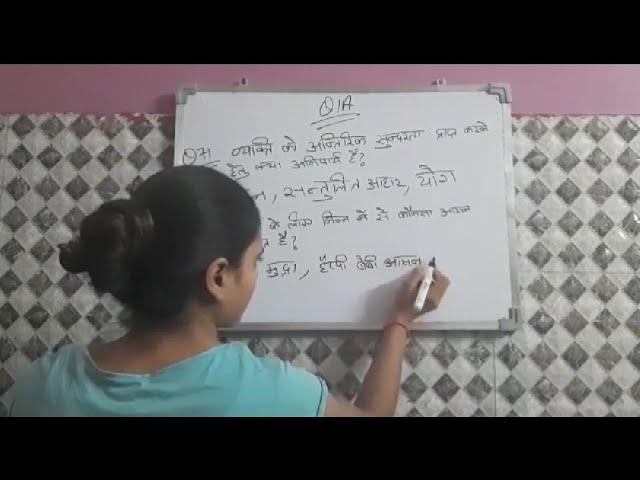 Q1A
Q71 व्यक्ति को आन्तरिक सुन्दरता प्राप्त करने
हेतु क्या अनिवार्य है?
, सन्तुलित आहार, योग
के लिए निम्न में से कौनसा आसन
है?
मुद्रा, हैप्पी बेबी आसन